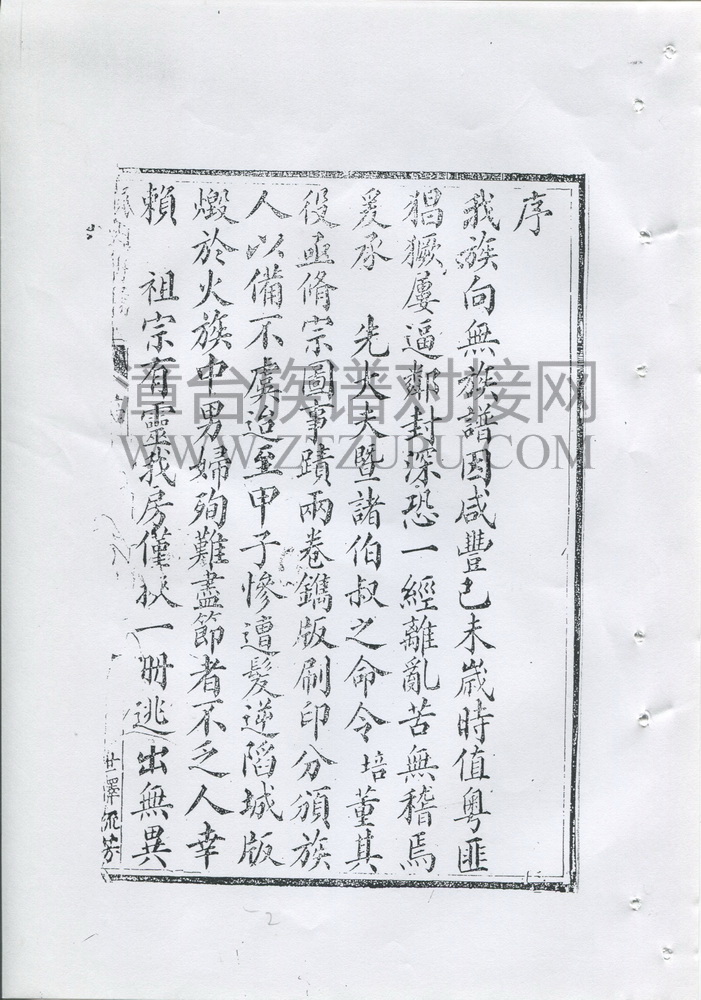 序
我族向無族譜因咸豐己未歲時值粵匪
猖獗屢逼鄰封深恐一經離亂苦無稽焉
爰承 先大夫暨諸伯叔之命令培董其
役亟脩宗圖事蹟兩卷鐫版刷印分頒族
人以備不虞迨至甲子慘遭髮逆陷城版
燬於火族中男婦殉難盡節者不乏人幸
賴 祖宗有靈我房僅挾一冊逃出無異
世澤流芳
漳台族谱对接网
WWW.ZTZUPU.COM
2